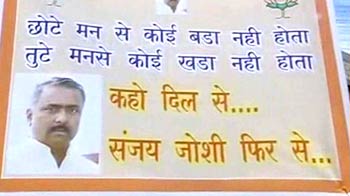 छोटे मन से कोई बडा नही होता
तुटे मनसे कोई खडा नही होता
कहो दिल से....
संजय जोशी फिर से...